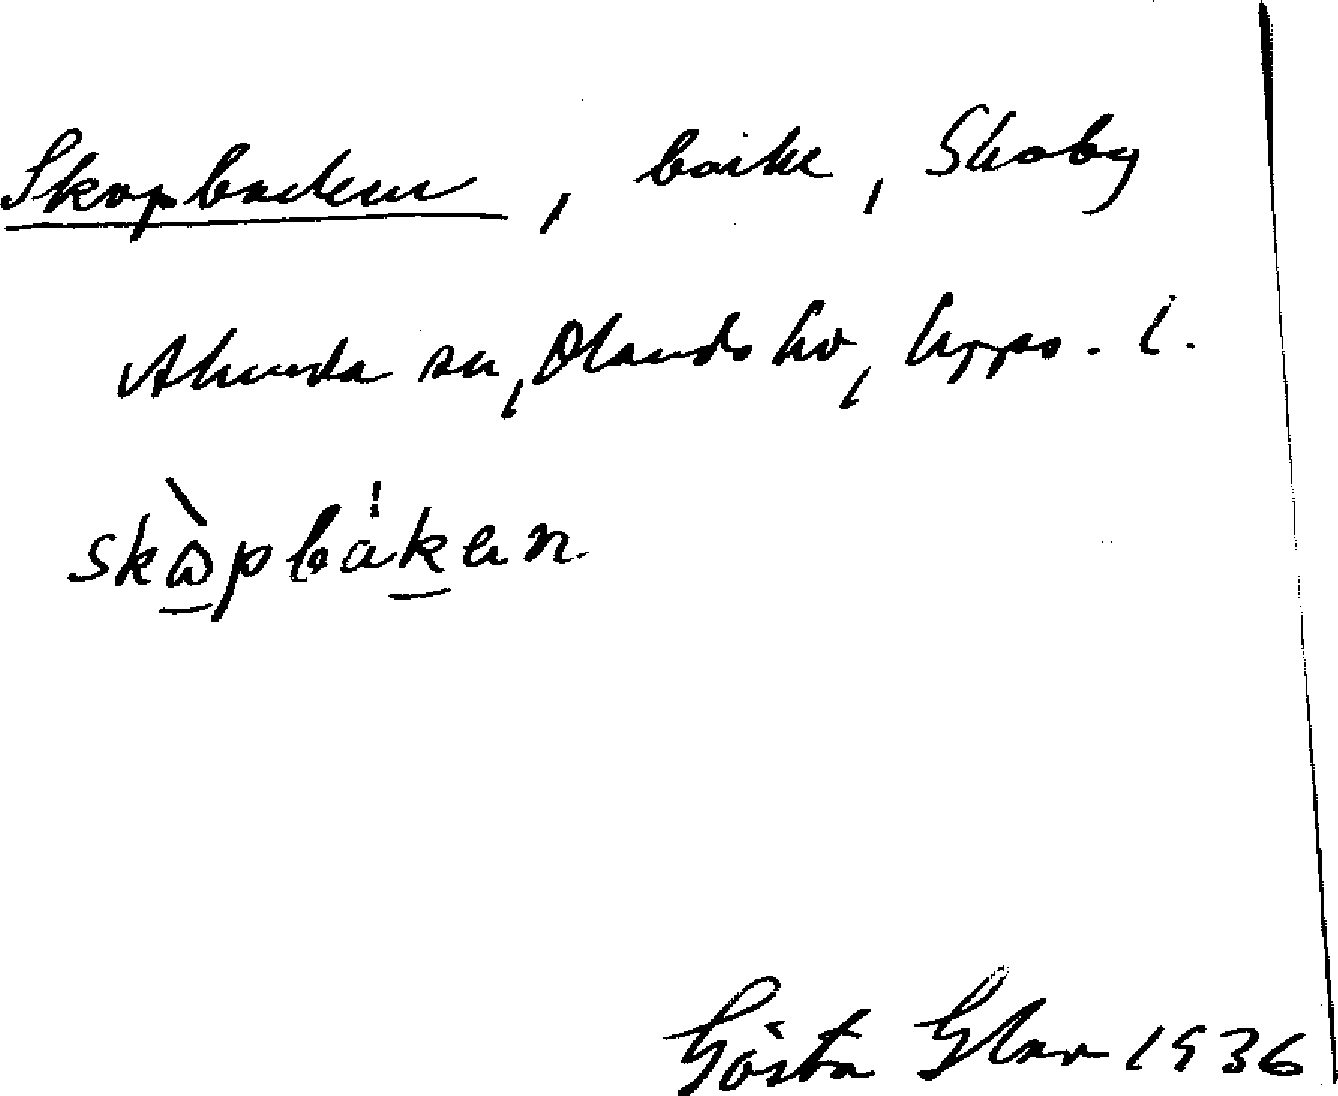 Skopbacken, backe, Skoby
Alunda sn, Olands hd, Upps. l.
skòpbákan
Gösta Glav 1936